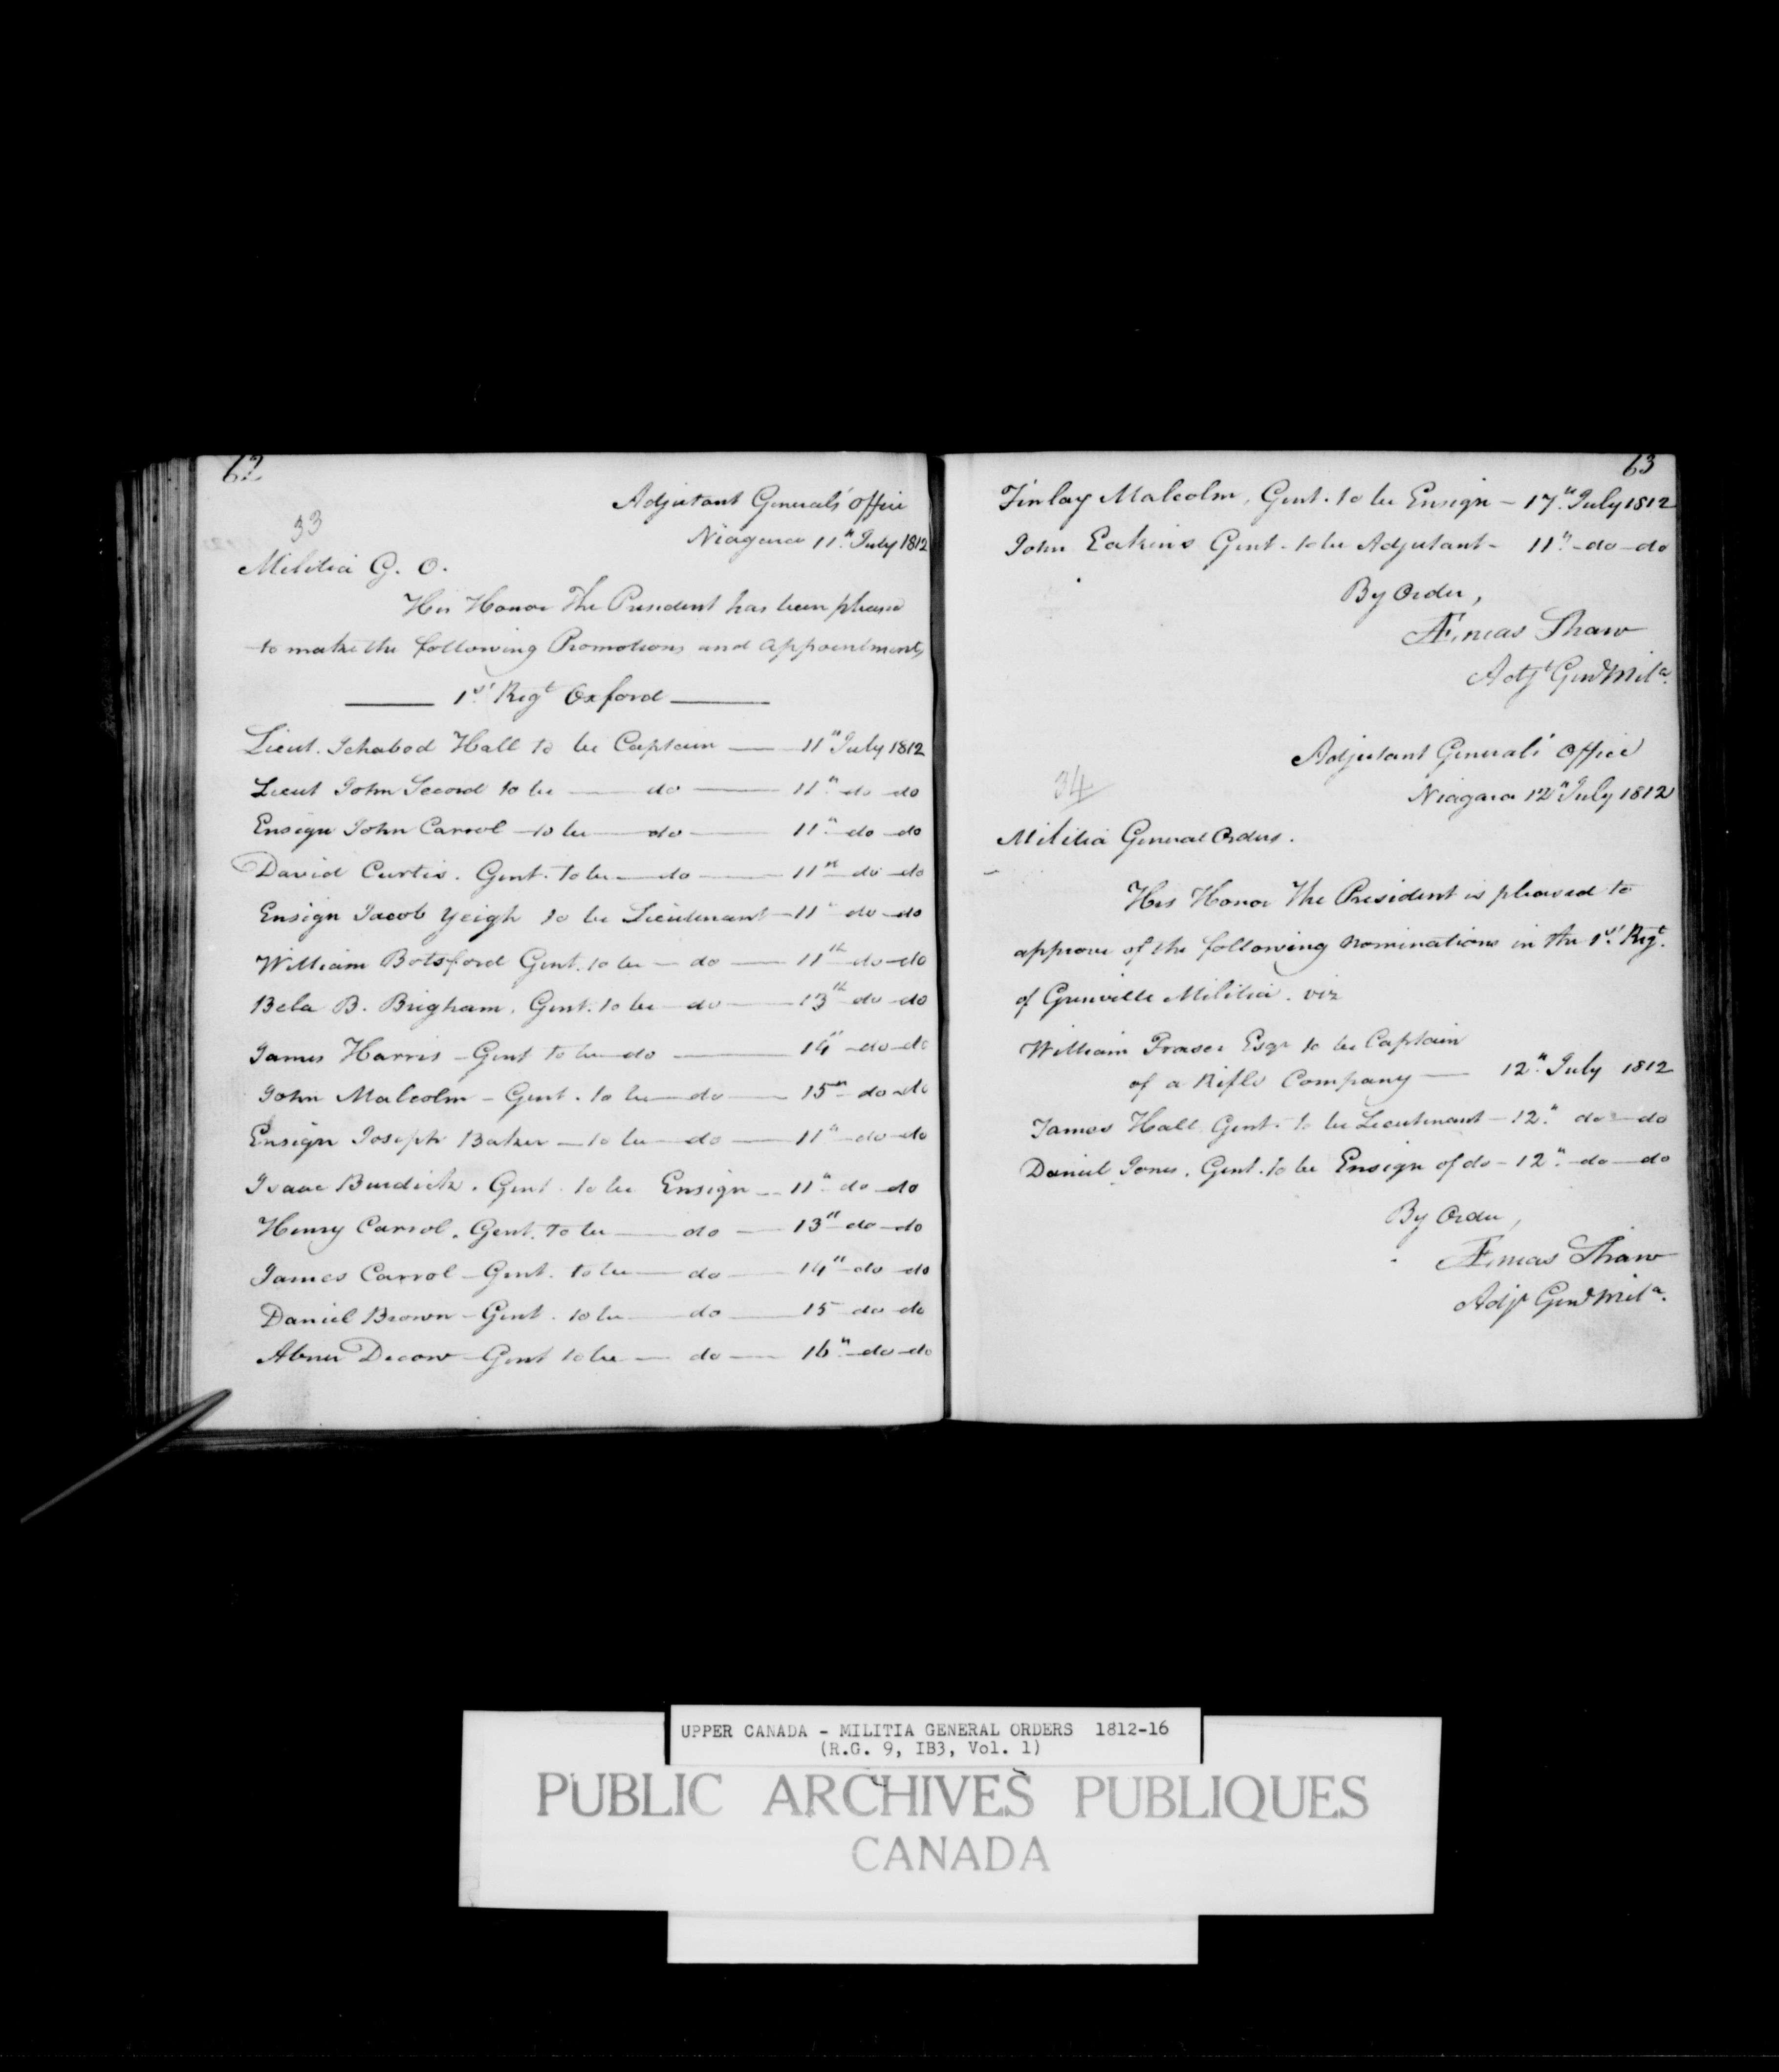 62
Adjutant General's Office
33
Niagara 11th July 1812
Militia G. O.
His Honor The President has been pleased
to make the following Promotions and appointments
1st Regt Oxford
Lieut. Ichabod Hall to be Captain — 11th July 1812
Lieut John Secord to be — do — 11th do do
Ensign John Carrol — to be — do — 11th do do
David Curtis. Gent. to be — do — 11th do do
Ensign Jacob Yeigh to be Lieutenant — 11th do do
William Botsford Gent. to be — do — 11th do do
Bela B. Brigham. Gent. to be — do — 13th do do
James Harris — Gent to be do — 14th do do
John Malcolm — Gent. to be — do — 15th do do
Ensign Joseph Baker — to be — do — 11th do do
Isaac Burdick. Gent. to be Ensign — 11th do do
Henry Carrol. Gent. to be — do — 13th do do
James Carrol — Gent. to be — do — 14th do do
Daniel Brown — Gent. to be — do — 15 do do
Abner Decow — Gent to be — do — 16th do do
63
Finlay Malcolm. Gent. to be Ensign — 17th July 1812
John Eakins Gent. to be Adjutant — 11th do do
By Order,
Æneas Shaw
Adjt Genl Mila.
Adjutant General's Office
34
Niagara 12th July 1812
Militia General Orders.
His Honor The President is pleased to
approve of the following nominations in the 1st Regt.
of Grenville Militia. viz
William Fraser Esqr to be Captain
of a Rifle Company — 12th July 1812
James Hall Gent. to be Lieutenant — 12th do do
Daniel Jones. Gent. to be Ensign of do — 12th do do
By Order,
Æneas Shaw
Adjt Genl Mila.
UPPER CANADA - MILITIA GENERAL ORDERS 1812-16
(R.G. 9, IB3, Vol. 1)
PUBLIC ARCHIVES PUBLIQUES
CANADA